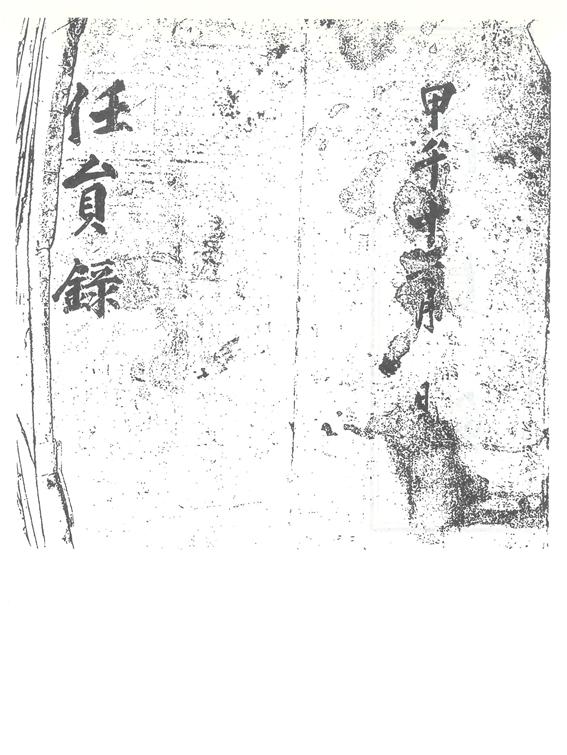 甲午十二月 日
任貟錄